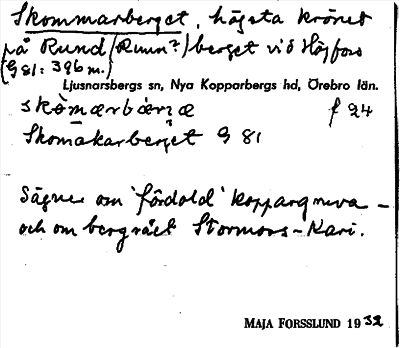 Skommarberget, högsta krönet
på Rund/(Runn?)/berget vid Högfors
(G 81: 396 m.)
Ljusnarsbergs sn, Nya Kopparbergs hd, Örebro län.
f 24
Skomakarberget G 81
Sägner om 'fördold' koppargruva –
och om bergrået Stormors-Kari.
MAJA FORSSLUND 1932